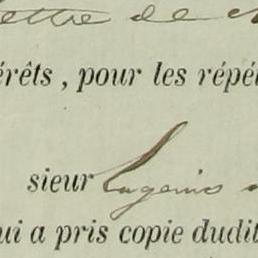 ettre de
érêts, pour les répé
sieur Eugenio
ui a pris copie dudit